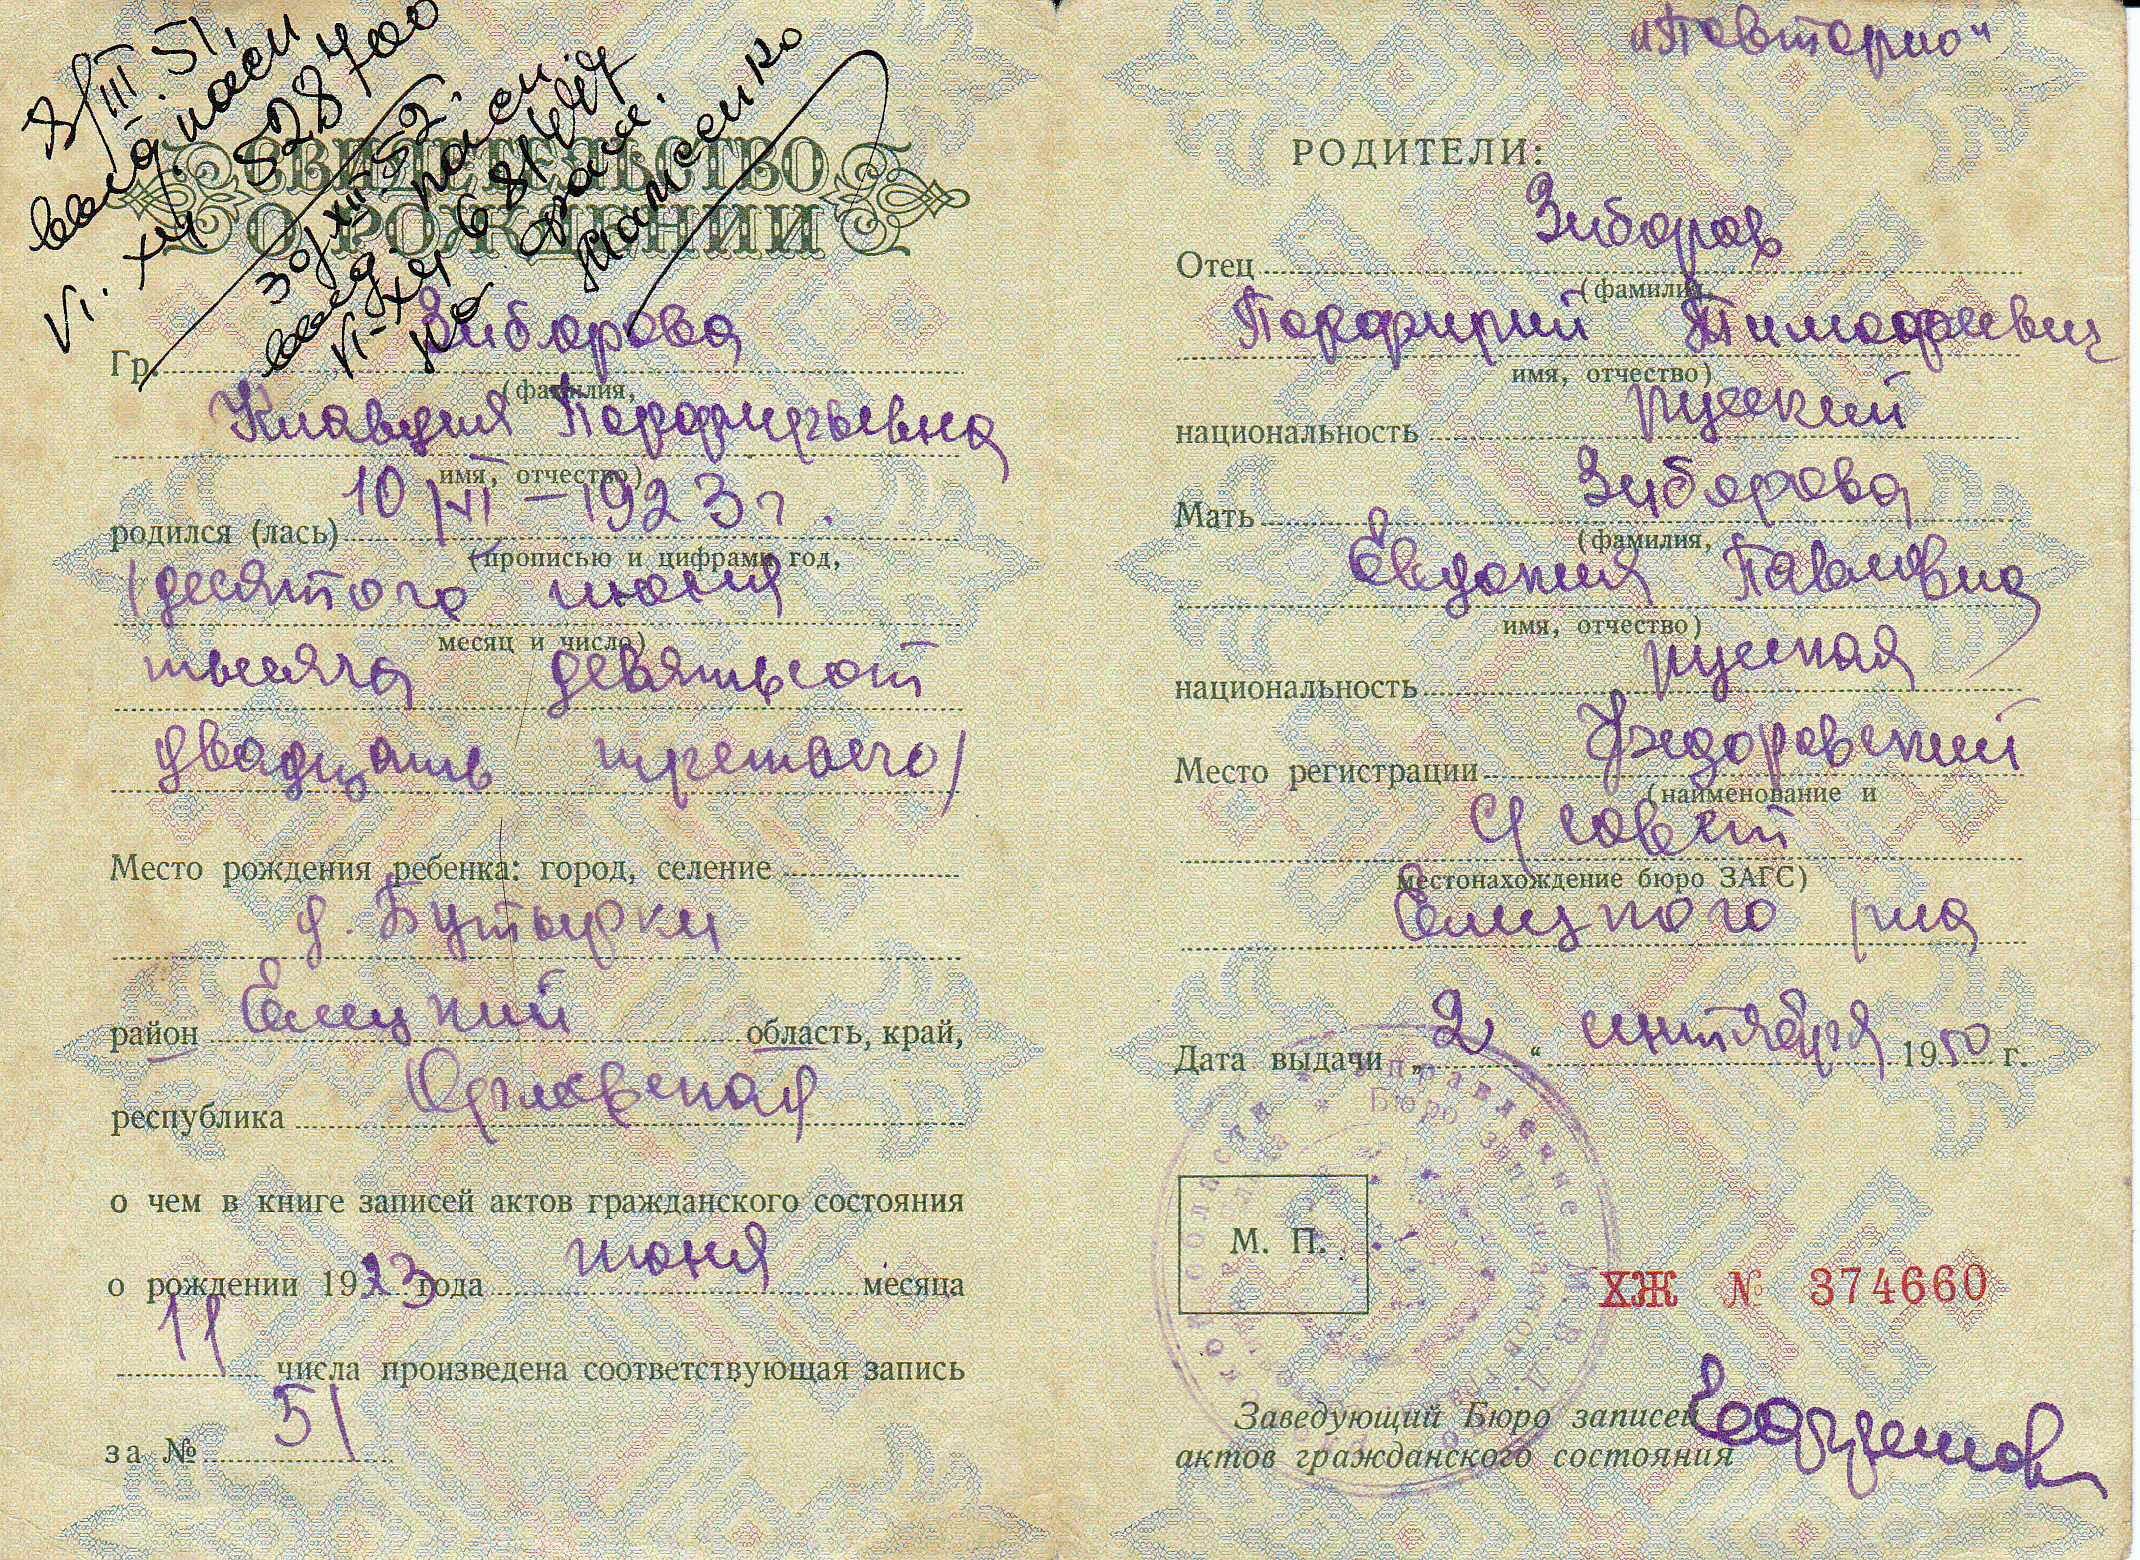 8/III 51.
выд. пасп
VI. ХЧ 528700
30/XII-52.
выд. пасп.
СВИДЕТЕЛЬСТВО
О РОЖДЕНИИ
Гр. Зиборова
(фамилия,
Клавдия Порфирьевна
имя, отчество)
родился (лась) 10/VI – 1923 г.
(прописью и цифрами год,
(десятого июня
месяц и число)
тысяча девятьсот
двадцать третьего)
Место рождения ребенка: город, селение
д. Бутырки
район Елецкий область, край,
республика Орловская
о чем в книге записей актов гражданского состояния
о рождении 1923 года июня месяца
11 числа произведена соответствующая запись
за № 51
„Повторно"
РОДИТЕЛИ:
Отец Зиборов
(фамилия,
Порфирий Тимофеевич
имя, отчество)
национальность русский
Мать Зиборова
(фамилия,
Евдокия Павловна
имя, отчество)
национальность русская
Место регистрации
(наименование и
с/совет
местонахождение бюро ЗАГС)
Елецкого р-на
Дата выдачи „2" сентября 1950 г.
М. П.
ХЖ № 374660
Заведующий Бюро записей
актов гражданского состояния